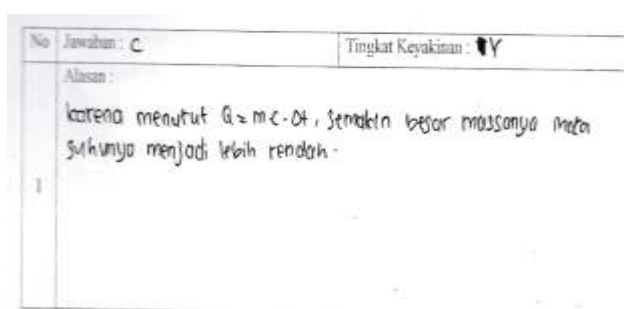 No Jawaban : C Tingkat Keyakinan : Y
Alasan :
karena menurut Q = m c . Δt, semakin besar massanya maka
suhunya menjadi lebih rendah.
1